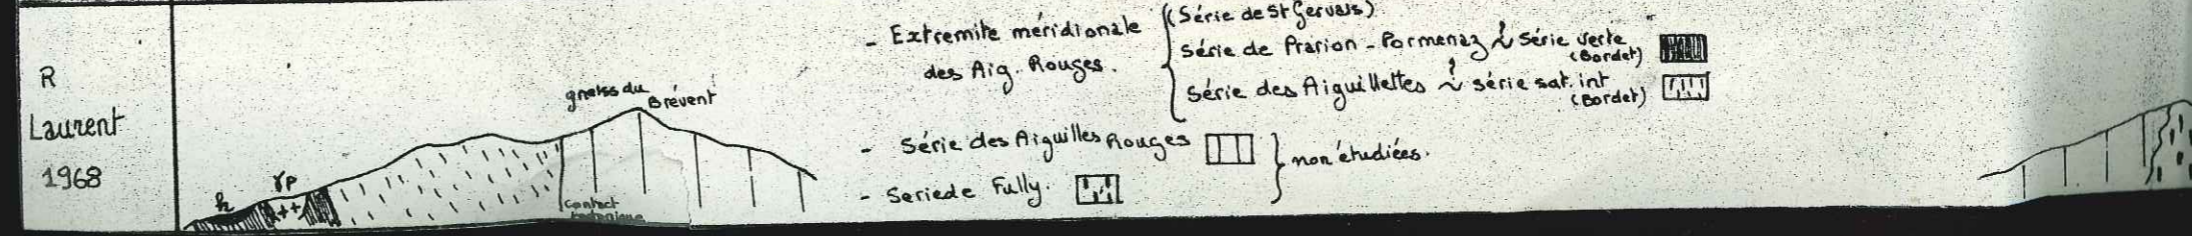 R
Laurent
1968
h
γp
++
gneiss du
Brévent
Contact
tectonique
- Extremite méridionale
des Aig. Rouges.
(Série de St Gervais)
Série de Prarion - Pormenaz ~ Série verte
(Bordet)
Série des Aiguillettes ~ série sat. int
(Bordet)
- Série des Aiguilles Rouges
- Serie de Fully.
non étudiées.